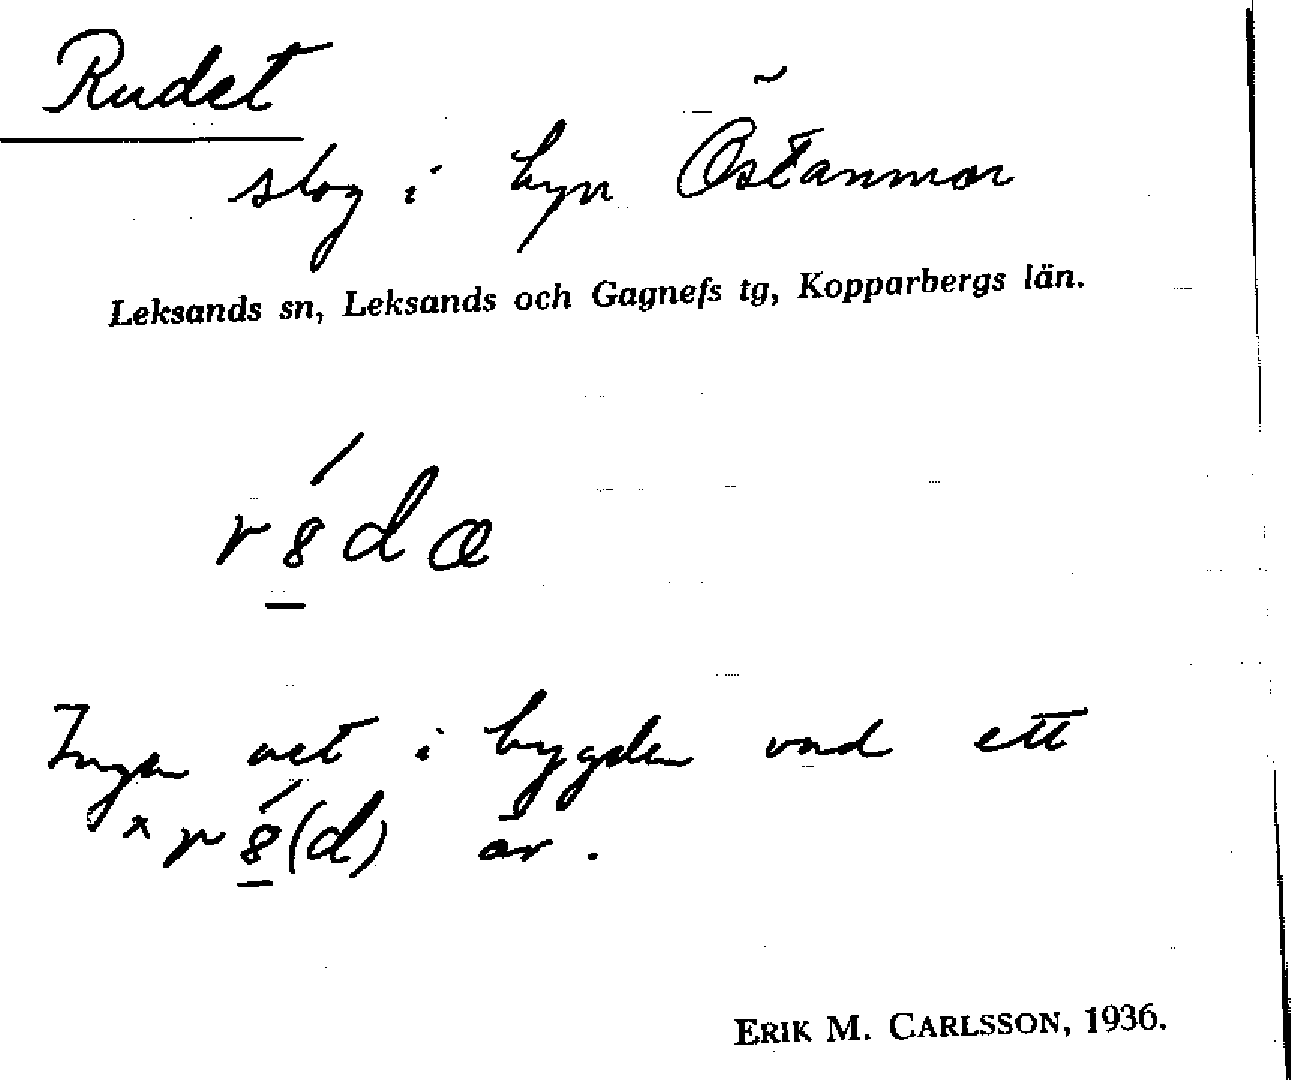 Rudet
slog i byn Östanmor
Leksands sn, Leksands och Gagnefs tg, Kopparbergs län.
r8́dæ
Ingen vet i bygden vad ett
*r8́(d) är.
ERIK M. CARLSSON, 1936.